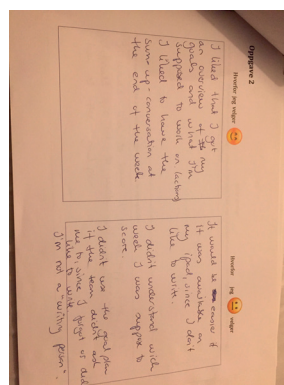 Oppgave 2
Hvorfor jeg velger
I liked that I got
an overview of my
goals and what I'm
supposed to work on (actions)
I liked to have the
sum-up-conversation at
the end of the week
Hvorfor jeg velger
It would be easier if
it was available on
my ipad, since I don't
like to write.
I didn't understand wich
week I was suppose to
score
I didn't use the goal plan
if the team didn't ask
me to, since I forgot or did
like to write
I'm not a "writing person".